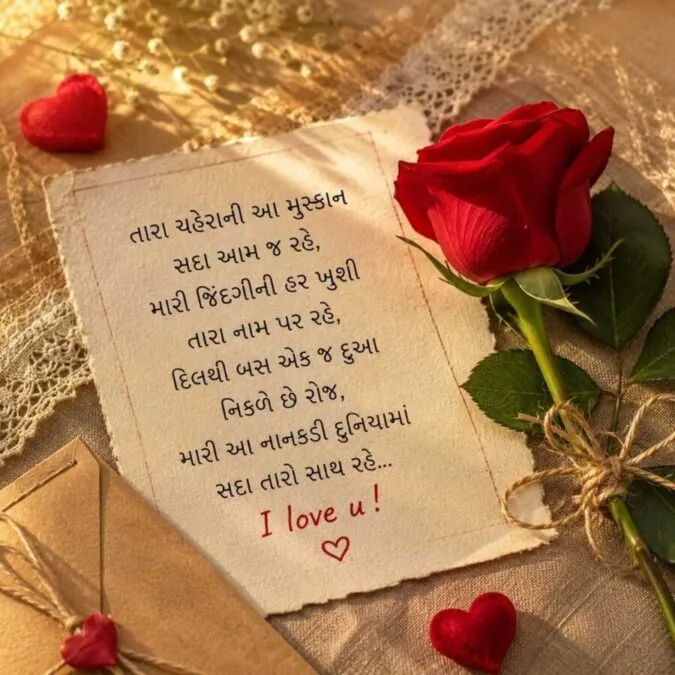 તારા ચહેરાની આ મુસ્કાન
સદા આમ જ રહે,
મારી જિંદગીની હર ખુશી
તારા નામ પર રહે,
દિલથી બસ એક જ દુઆ
નિકળે છે રોજ,
મારી આ નાનકડી દુનિયામાં
સદા તારો સાથ રહે...
I love u!